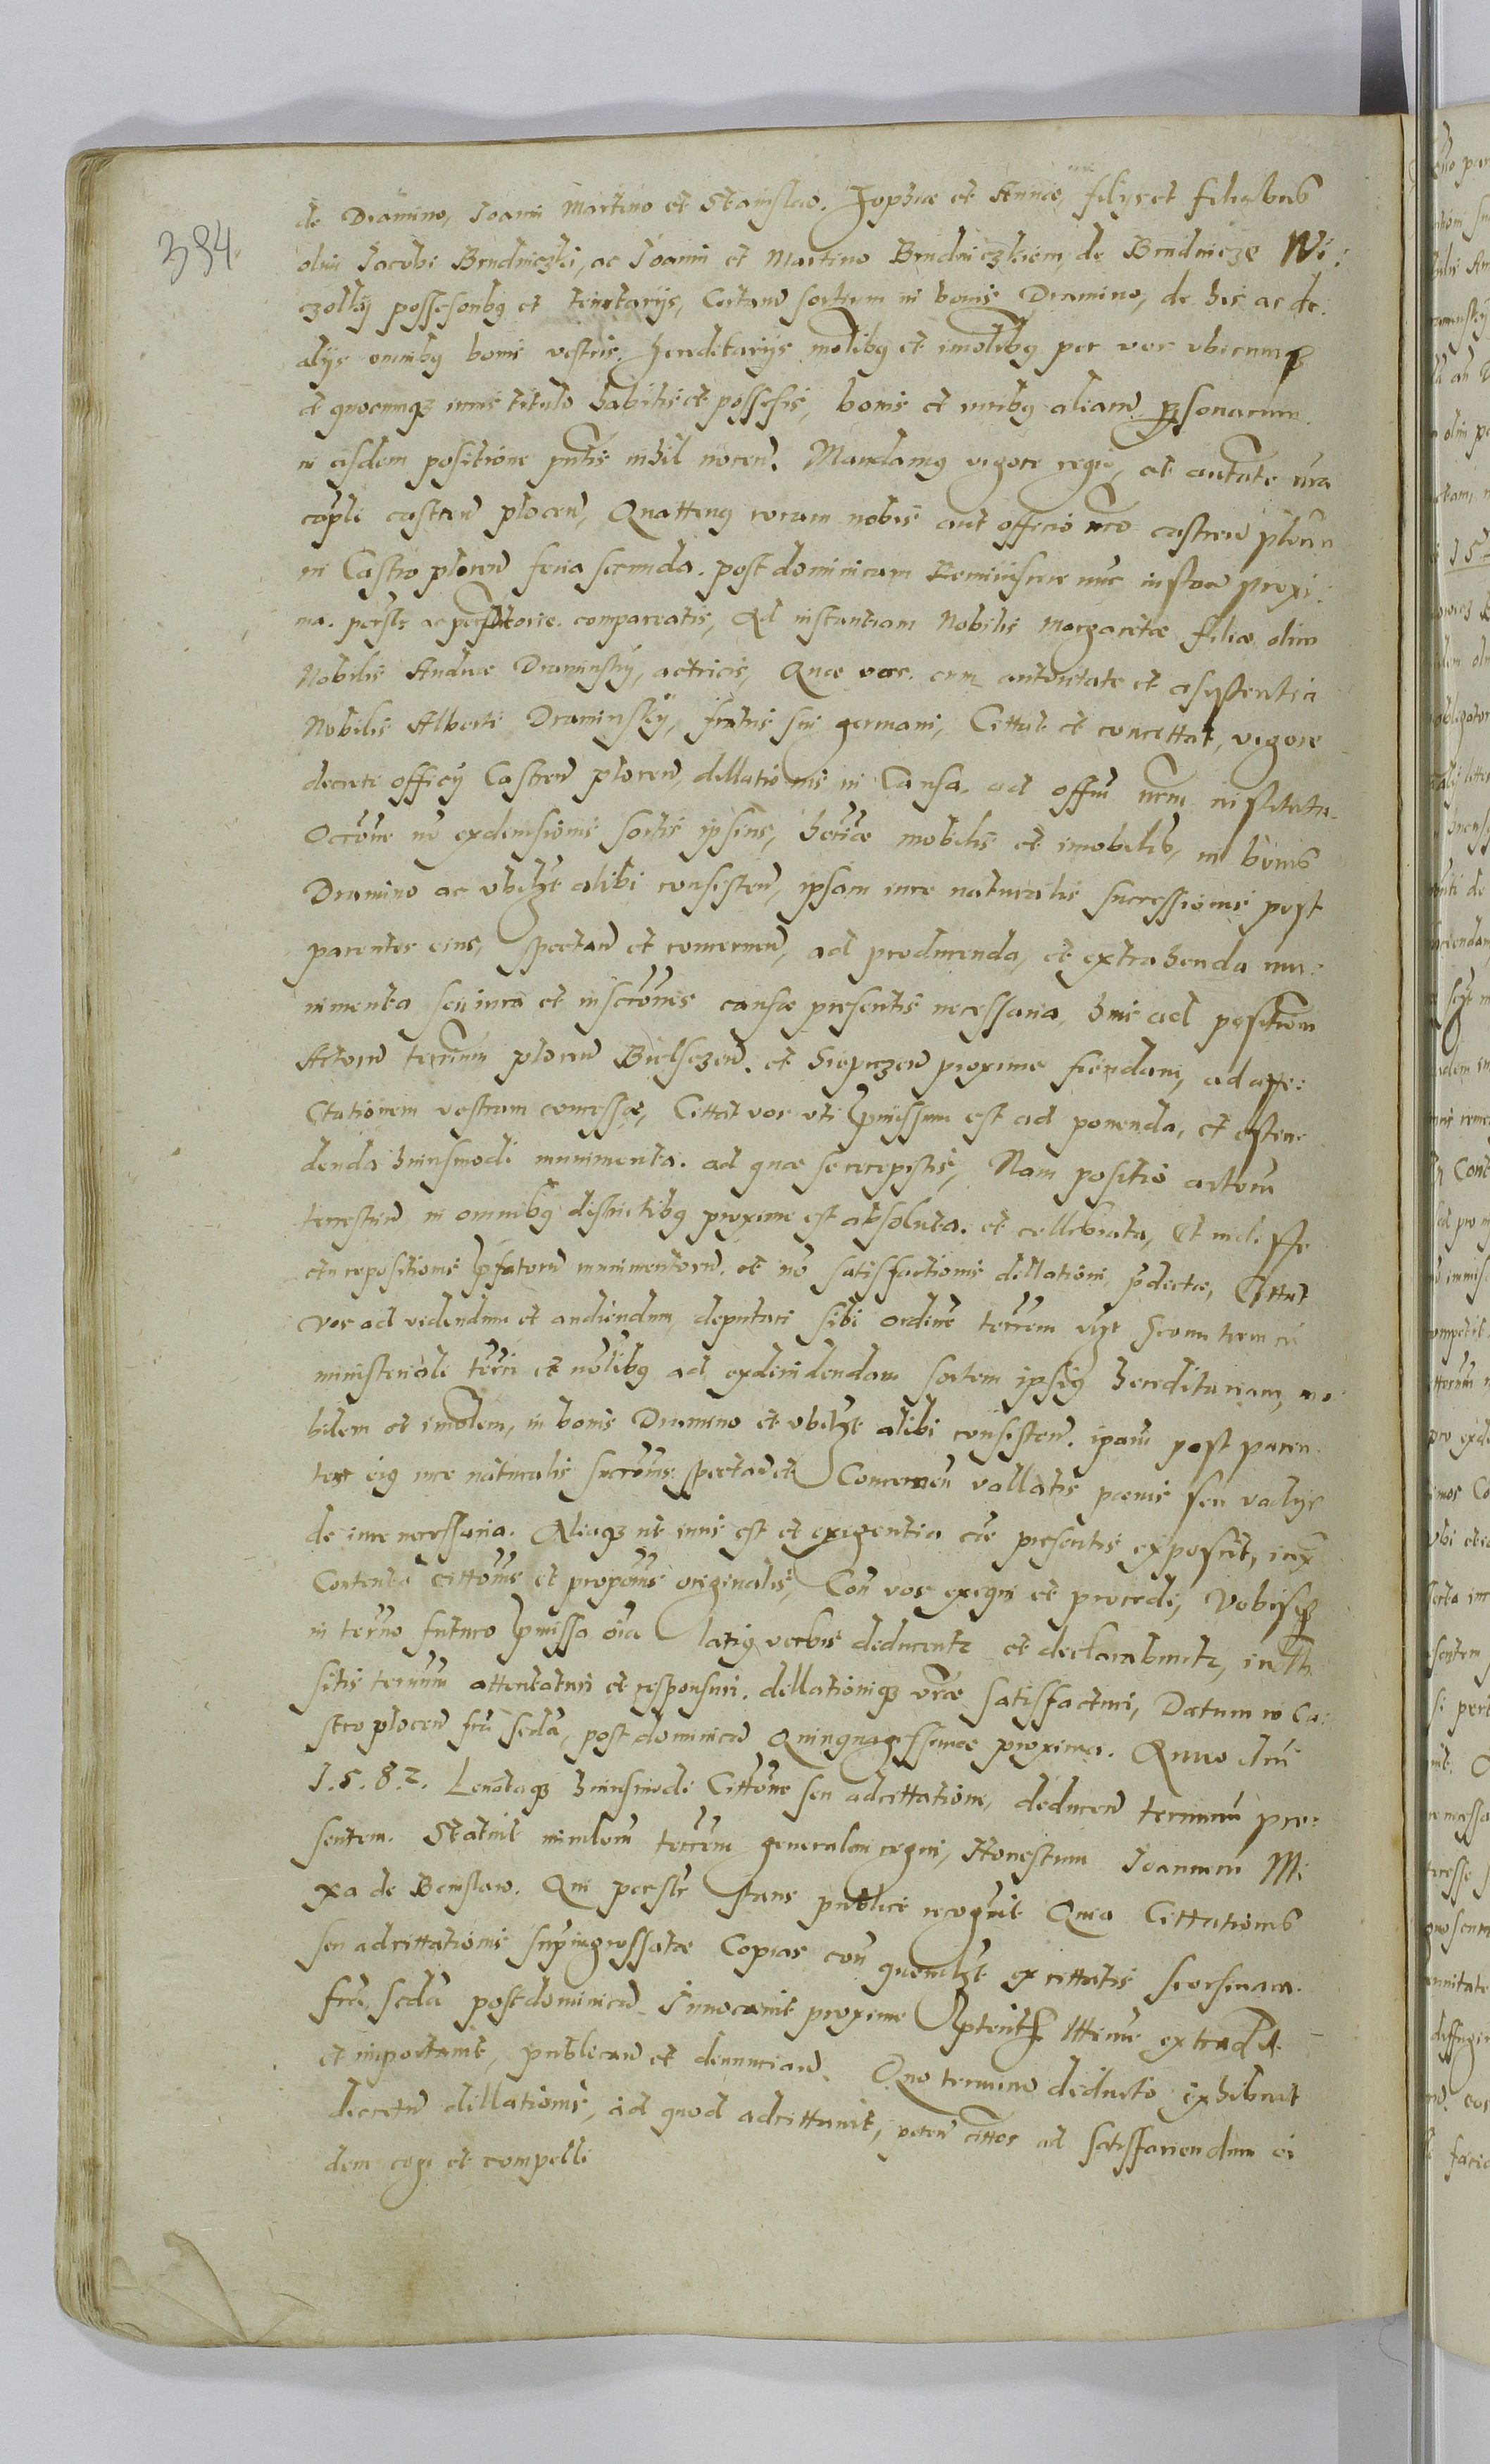 394.
de Dramino, Joanni Martino et Stanislao. Zophiae et Annae, filijs et filiabus
olim Jacobi Brudniczki, ac Joanni et Martino Brudniczkiem, de Brudnicze Wi:
czolkÿ possesoribq et tenutarijs, Certaru sortium in bonis Dramino, de his ac de
alijs omnibq bonis vestris. hereditarijs molibq et imolibq per vos vbicumq
et quocumqz iuris titulo habitis et possesis, bonis et iuribq aliaru personarum
in eisdem positione pntis nihil nocen. Mandamq vigore regio, et auttate nra
capli castren plocen, Quattenq coram nobis aut officio nro castren plocen
in Castro plocen feria secunda. post dominicam Reminiscere nunc instan proxi:
ma. persolr ac peremptorie. compareatis, Ad instantiam Nobilis Margaretae filiae olim
Nobilis Andreae Draminskÿ, actricis, Quae vos. cum authoritate et asystentia
Nobilis Alberti Draminskÿ, fratris sui germani, Cittat et concittat, vigore
decreti officij Castren plocen, dillationis in Causa. ad offiu nrm instituta.
Occione no exdivisionis sortis ipsius, herticae mobilis et imobilis, in bonis
Dramino ac vbilzt alibi consisten, ipsam iure naturalis successionis post
parentes eius, spectan et concernen, ad producenda, et extrahenda mu:
nimenta seu iura et inscrones causae presentis necessaria, hinc ad positiom
Actoru terrium plocen Bielsczen. et Sieprczen proxime fiendam, ad affe:
ctationem vestram concessae, Cittat vos vti pmissum est ad ponenda, et osten
denda huiusmodi munimenta. ad quae se recepistis, Nam positio actoru
terrestriu in omnibq districtibq proxime est absoluta. et cellebrata, Et in de ffe
ctu repositionis pfatoru munimentoru. et no satisfactionis dillationi, pdictae, Cittat
vos ad videndum et audiendum, deputari sibi ordine terrem
ministeriali terri et nolibq ad exdividendam sortem ipsiq hereditariam, mo
bilem et imolem, in bonis Dramino et vbilzt alibi consisten. ipam post paren
tes eiq iure naturalis succonis spectan et Concernen vallatis poenis seu vadijs
de iure necessaria. Aliaqz ut iuris est et exigentia cae presentis exposcit, iux
Contenta cittonis et propones originalis, Con vos exequi et procedi, Vobisq
in termo futuro pmissa oia latiq verbis deducentr et declarabuntr, indth
sitis termum attentaturi et responsuri. dillationiqz vrae satisfacturi, Datum in Ca:
stro plocen fria scda, post dominica Quinquagessimae proxima. Anno dni
1.5.8.2. huiusmodi Cittone seu adcittatione, deducen terminu pre:
sentem. Statuit mirlem terrem generalem regni, Honestum Joannem Mi
xa de Benislaw. Qui persolr stans publice recognit Quia Cittationis
seu adcittationis supingrossatae Copias con quemlzt ex cittatis seorsiuam
fria scda post dominica Inuocauit proxime ptenth ittine extradit
et importauit, publicau et denunciau. Quo termino deducto exhibuit
decretu dillationis, ad quod adcittauit, peten cittos ad satisfaciendum ei
dem cogi et compelli